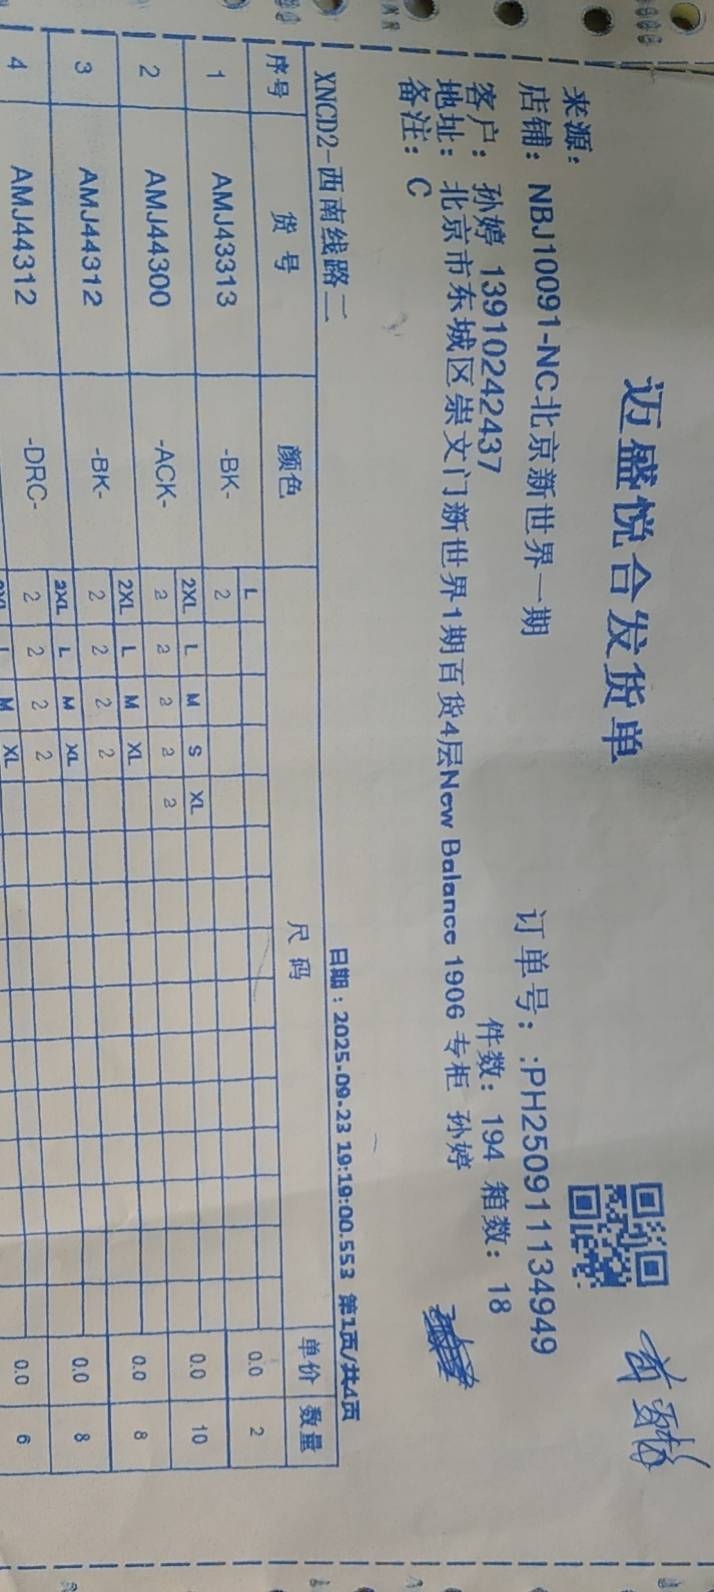 迈盛悦合发货单
来源：
店铺：NBJ10091-NC北京新世界一期 订单号：:PH250911134949
客户：孙婷 13910242437 件数：194 箱数：18
地址：北京市东城区崇文门新世界1期百货4层New Balance 1906 专柜 孙婷
备注：C
日期：2025-09-23 19:19:00.553 第1页/共4页
XNCD2-西南线路二
序号 货号 颜色 尺码 单价 数量
L
1 AMJ43313 -BK- 2 0.0 2
2XL L M S XL
2 AMJ44300 -ACK- 2 2 2 2 2 0.0 10
2XL L M XL
3 AMJ44312 -BK- 2 2 2 2 0.0 8
2XL L M XL
4 AMJ44312 -DRC- 2 2 2 2 0.0 8
L M XL
6